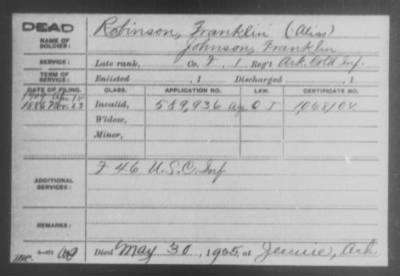 DEAD Robinson, Franklin (Alias)
NAME OF SOLDIER: Johnson, Franklin
SERVICE: Late rank, Co. F, 1 Reg't Ark. Cold Inf.
TERM OF SERVICE: Enlisted , 1 Discharged , 1
DATE OF FILING. CLASS. APPLICATION NO. LAW. CERTIFICATE NO.
Invalid, 589,936 1068104
Widow,
Minor,
ADDITIONAL SERVICES: F 46 U.S.C. Inf
REMARKS:
Died May 30, 1925, at Jennie, Ark